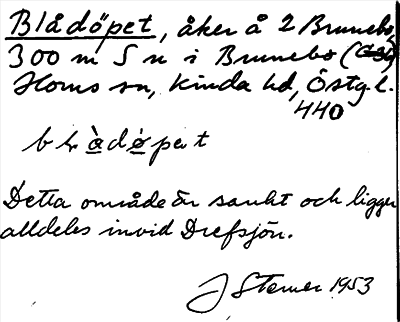 Blådöpet, åker å 2 Brunebo,
300 m S u i Brunebo
Horns sn, Kinda hd, Östg. l.
440
blådöpet
Detta område är sankt och ligger
alldeles invid Drefsjön.
J Sterner 1953